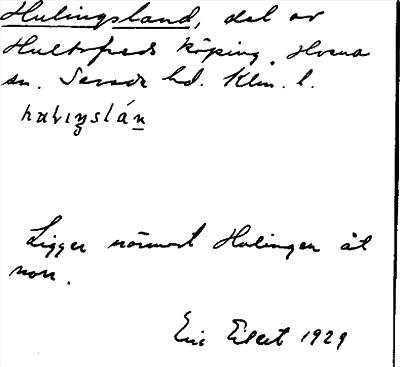 Hulingsland, del av
Hultsfreds köping. Hvena
sn. Sevede hd. Klm. l.
Ligger närmast Hulingen åt
norr.
Eric Elert 1929